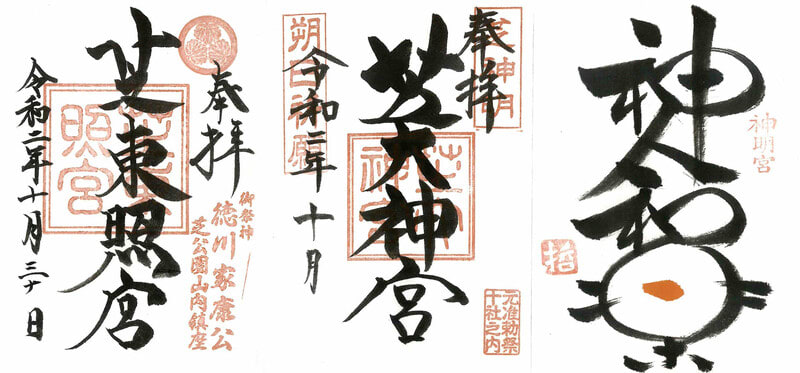 奉拝
御祭神
徳川家康公
芝公園山内鎮座
芝東照宮
令和二年十月三十日
奉拝
元准勅祭
十社之内
芝大神宮
朔日祈願
令和二年十月
神明宮
神人和楽